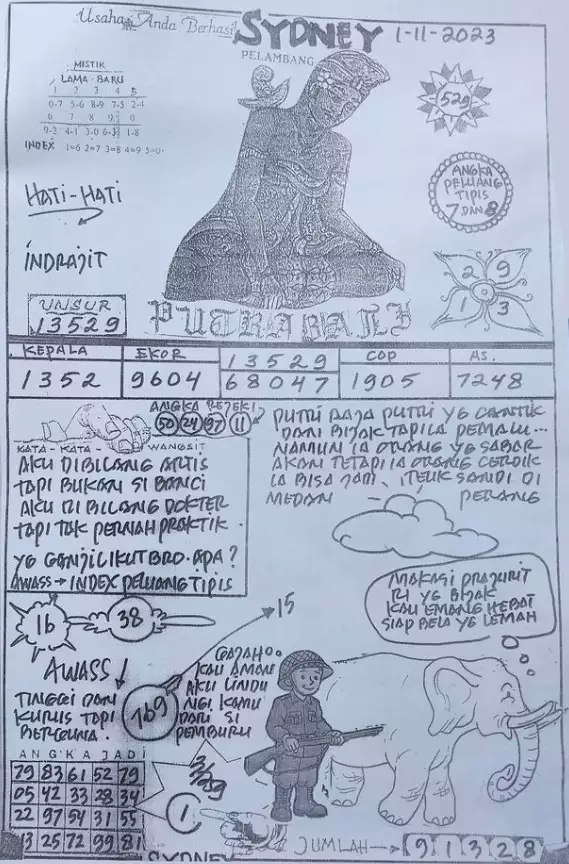 Usaha Anda Berhasil
SYDNEY
1-11-2023
PELAMBANG
MISTIK
LAMA - BARU
1 2 3 4 5
0-7 5-6 8-9 7-5 2-4
6 7 8 9 0
9-2 4-1 3-0 6-3 1-8
INDEX 1=6 2=7 3=8 4=9 5=0
529
HATI-HATI
ANGKA
PELUANG
TIPIS
7 DAN 8
INDRAJIT
2 9
1 3
UNSUR
13529
PUTRA BALI
KEPALA EKOR 13529 COP AS.
1352 9604 68047 1905 7248
ANGKA REJEKI
50 24 97 11
KATA - KATA - WANGSIT
AKU DIBILANG ARTIS
TAPI BUKAN SI BANCI
AKU DI BILANG DOKTER
TAPI TUK PERNAH PRAKTIK.
YG GANJIL IKUT BRO. APA?
AWASS → INDEX PELUANG TIPIS
PUTRI RAJA PUTRI YG CANTIK
DAN BIJAK TAPI LA PEMALU...
NAMUN IA ORANG YG SABAR
AKAN TETAPI IA ORANG CERDIK
IA BISA JADI, TELIK SANDI DI
MEDAN PERANG
16
38
15
MAKASI PRAJURIT
RI YG BIJAK
KAU EMANG HEBAT
SIAP BELA YG LEMAH
AWASS
TINGGI DAN
KURUS TAPI
BERGUNA.
769
GAJAH
KAU AMAN
AKU LINDU
NGI KAMU
DARI SI
PEMBURU
ANGKA JADI
79 83 61 52 79
05 42 33 28 34
22 97 54 31 55
13 25 72 99 81
1
SYDNEY
JUMLAH → 9 1 3 2 8